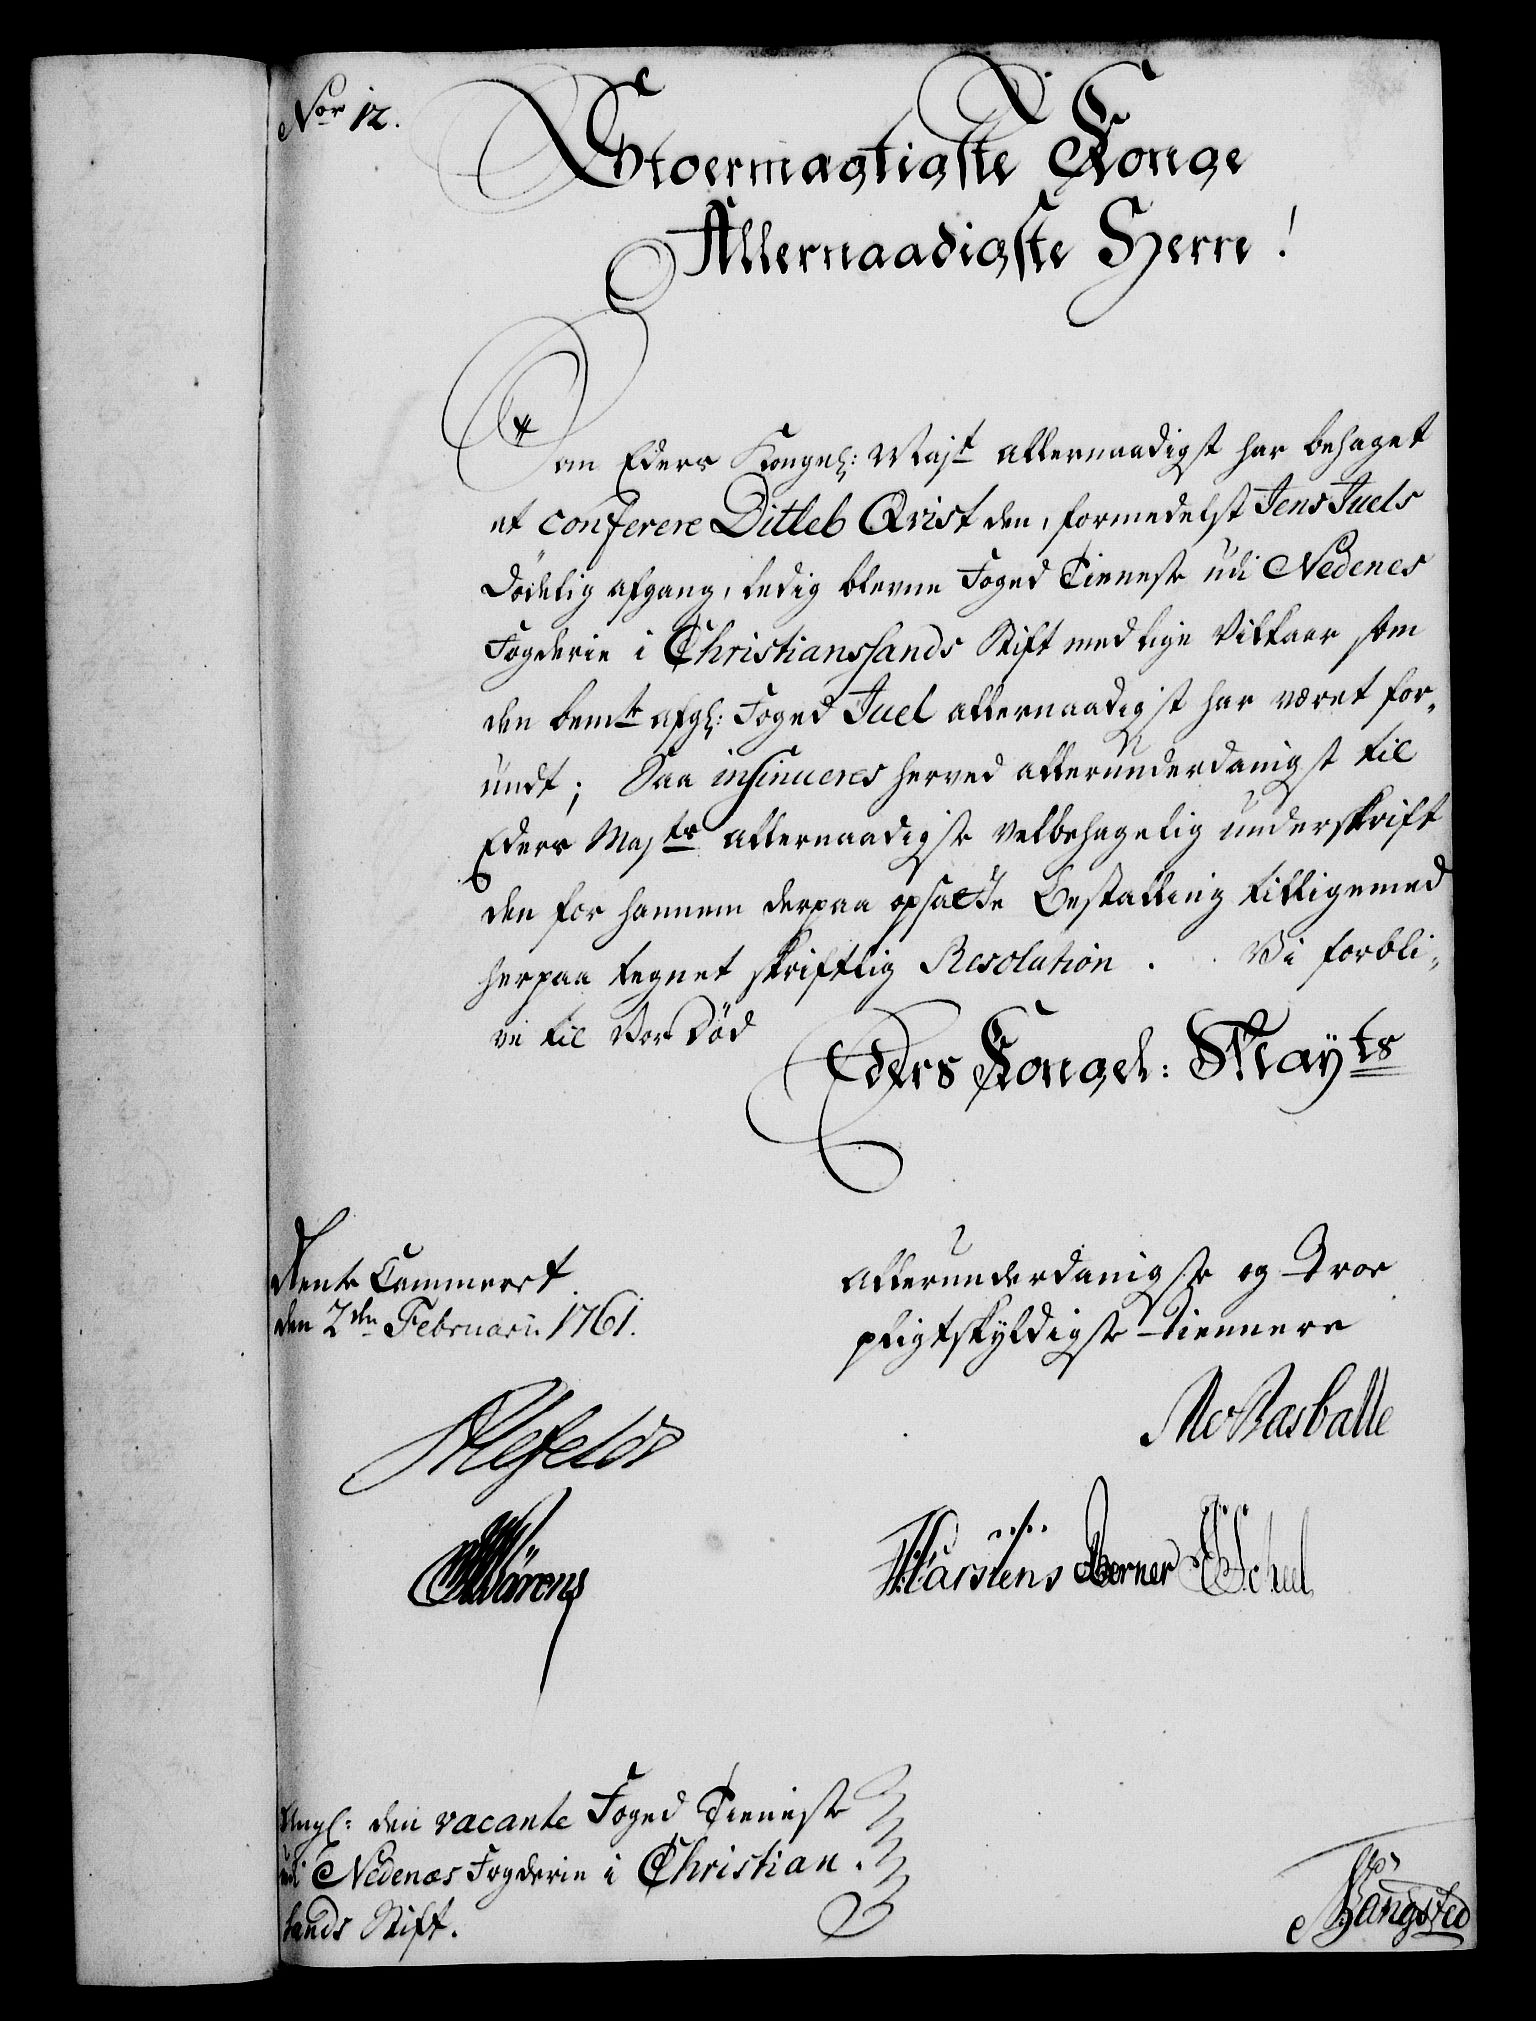 Nor 12.
Stoermagtigste Konge
Allernaadigste Herre!
Som Eders Kongel: Majt allernaadigst har behaget
at conferere Ditleb Qvist den, formedelst Jens Juels
Dödelig afgang, ledig blevne Foged Tieneste udi Nedenes
Fogderie i Christianssands Stift med lige Vilkaar som
den bemte afgl: Foged Juel allernaadigst har været for-
undt; Saa insinueres herved allerunderdanigst til
Eders Majts allernaadigste velbehagelig underskrift
den for hannem derpaa opsatte Bestalling tilligemed
herpaa tegnet skriftlig Resolution. Vi forbli-
ve til Vor Död
Eders Kongel: Mayts
Rente Cammeret
den 2den Februarii 1761.
allerunderdanigste og Troe
pligtskyldigste Tiennere
Ahlefeldt
Rasballe
Wärens
Karstens Berner Schul
Angl: den vacante Foged Tieneste
udi Nedenæs Fogderie i Christian-
sands Stift.
Bangsted